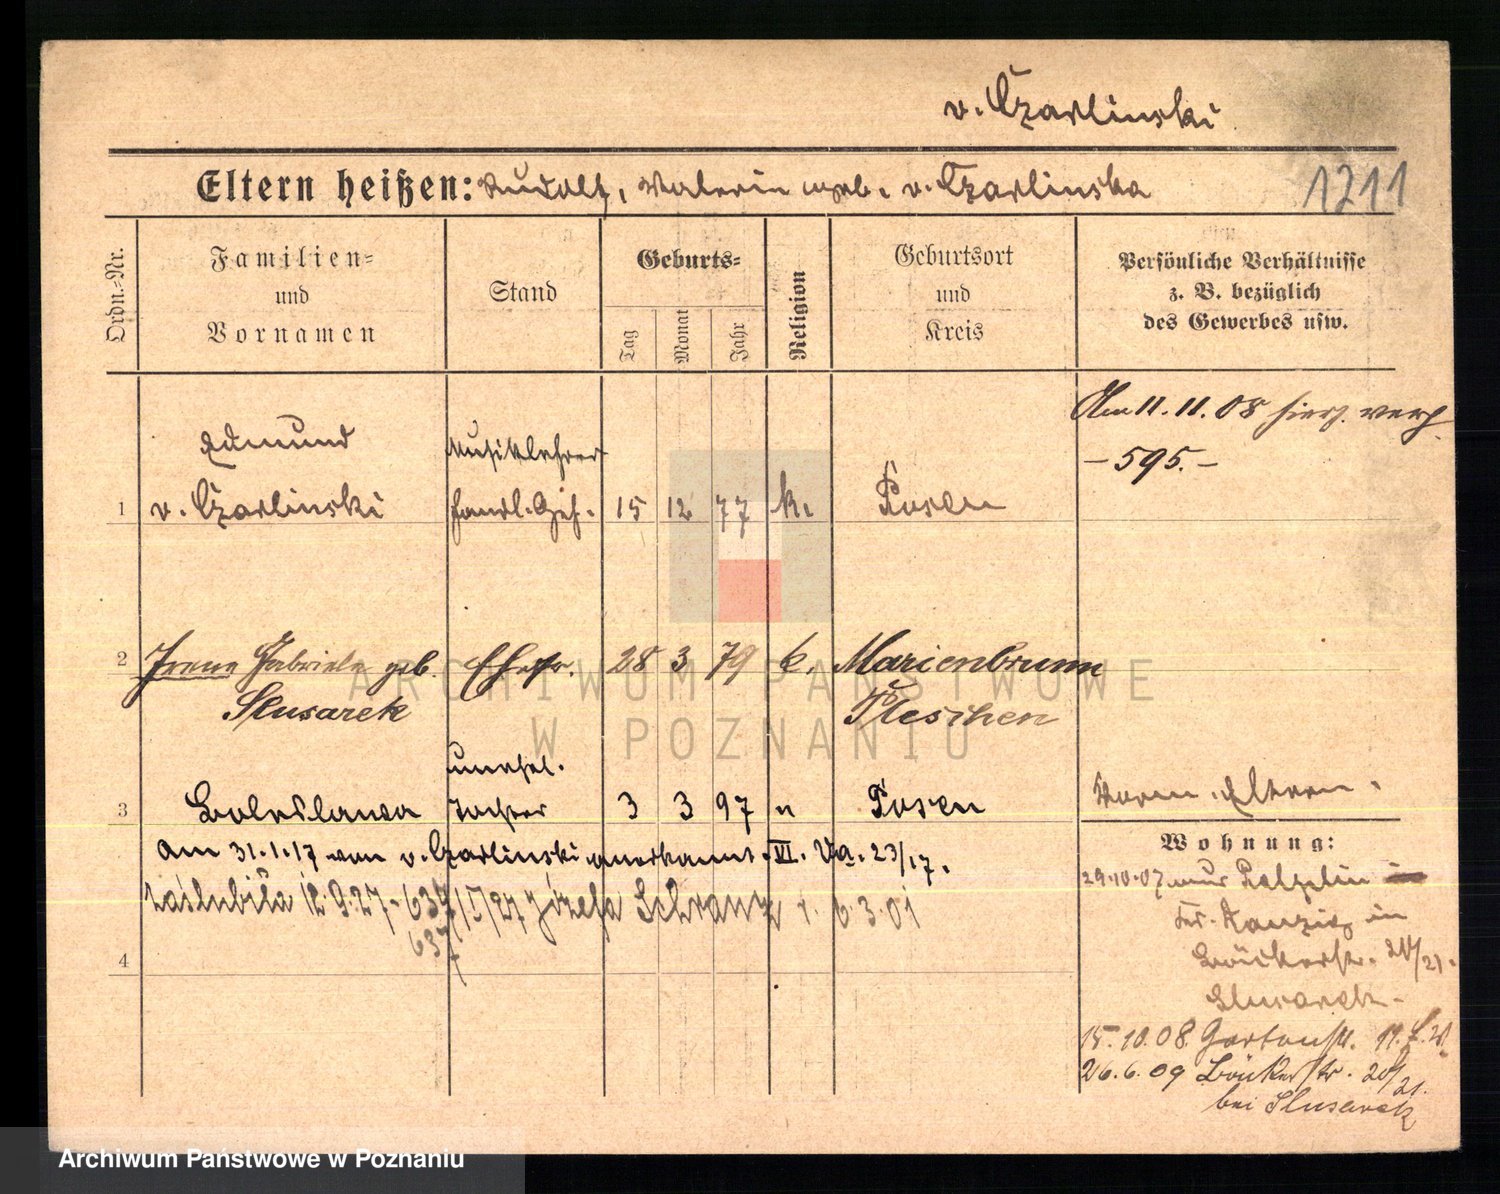 v. Czarlinski
Eltern heißen: Rudolf, Valerie geb. v. Czarlinska
1211
Ordn.-Nr.
Familien-
und
Vornamen
Stand
Geburts-
Tag
Monat
Jahr
Religion
Geburtsort
und
Kreis
Persönliche Verhältnisse
z. B. bezüglich
des Gewerbes usw.
Am 11.11.08 hiers. verh.
- 595. -
Edmund
Musiklehrer
1 v. Czarlinski Handl. Geh. 15 12 77 k. Posen
2 Irene Gabriele geb. Ehefr. 28 3 79 k. Marienbrunn
Slusarek
Pleschen
unehel.
3 Boleslawa Tochter 3 3 97 " Posen
Vorn. Eltern.
am 31.1.17 von v. Czarlinski anerkannt. VI. Va. 23/17.
zaślubiła 12.9.27 - 639/IV/27 Józefa Schranz r. 6.3.01
637
4
Wohnung:
29.10.07 aus Pelplin
Kr. Danzig in
Bäckerstr. 20/21.
Slusarek.
15.10.08 Gartenstr. 11.
26.6.09 Bäckerstr. 20/21.
bei Slusarek
ARCHIWUM PAŃSTWOWE
W POZNANIU
Archiwum Państwowe w Poznaniu